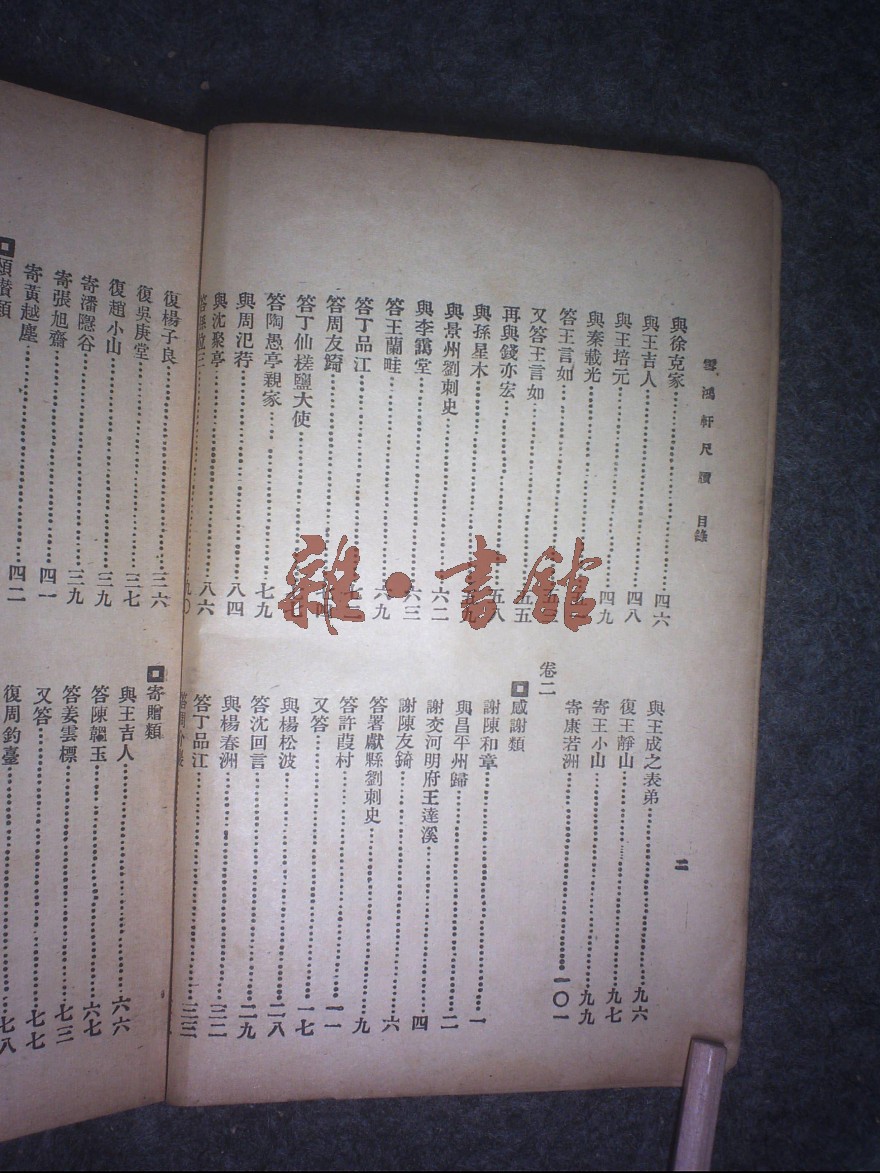 雪鴻軒尺牘 目錄
二
與徐克家 四六
與王吉人 四八
與王培元 四九
與秦載光
答王言如
又答王言如 五五
再與錢亦宏 五八
與孫星木
與景州劉刺史 六二
與李靄堂 六三
答王蘭畦 六九
答丁品江
答周友錡
答丁仙槎鹽大使
答陶愚亭親家 七九
與周汜荇 八四
與沈聚亭 八六
九〇
與王成之表弟 九六
復王靜山 九七
寄王小山 九九
寄康若洲 一〇一
卷二
感謝類
謝陳和章 一
與昌平州歸 二
謝交河明府王達溪 四
謝陳友錡 六
答署獻縣劉刺史 九
答許葭村 一一
又答 一七
與楊松波 二八
答沈回言 二九
與楊春洲 三二
答丁品江 三三
復楊子良 三六
復吳庚堂 三七
復趙小山 三九
寄潘隱谷 三九
寄張旭齋 四一
寄黃越塵 四二
頌贊類
寄贈類
與王吉人 六六
答陳韞玉 六七
答姜雲標 七三
又答 七七
復周鈞臺 七八
雜·書館